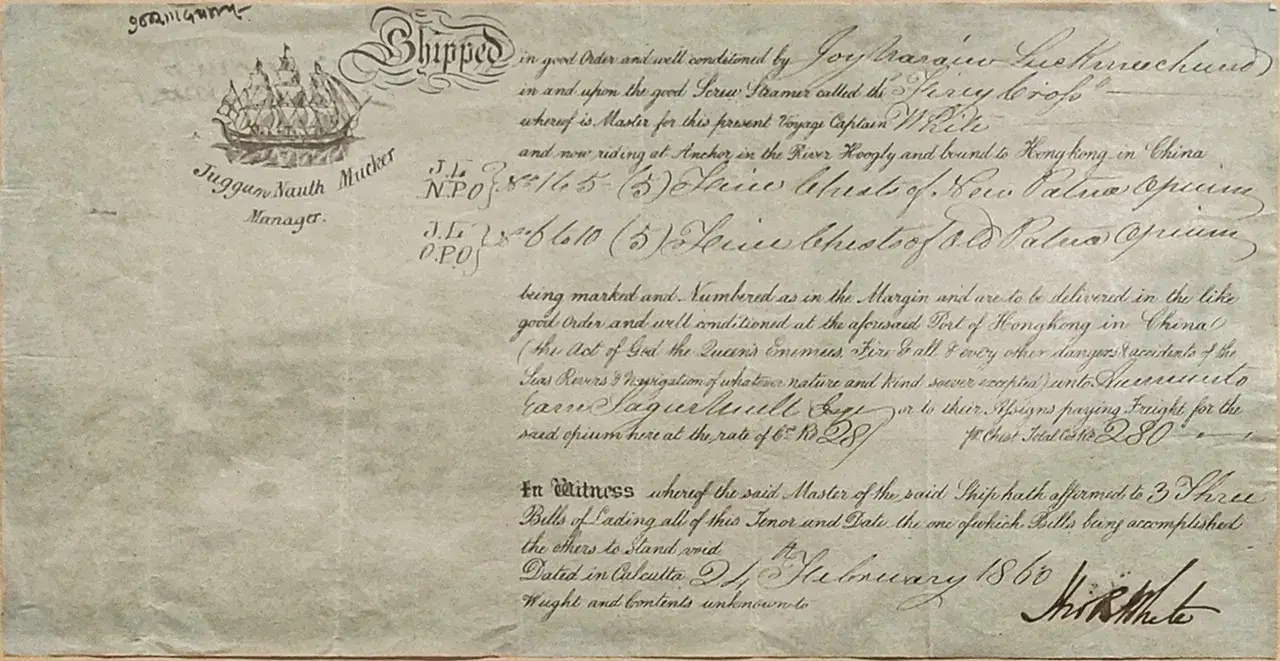 Shipped in good Order and well conditioned by Joy Narain Luckmeechund
in and upon the good Screw Steamer called the "Fiery Cross"
whereof is Master for this present Voyage Captain White
and now riding at Anchor in the River Hoogly and bound to Hongkong in China
Juggun Nauth Mucker
Manager.
J. L. N.P.O } No 1 to 5 (5) Five Chests of New Patna Opium
J. L. O.P.O } No 6 to 10 (5) Five Chests of Old Patna Opium
being marked and Numbered as in the Margin and are to be delivered in the like
good Order and well conditioned at the aforesaid Port of Hongkong in China
(the Act of God the Queen's Enemies, Fire & all & every other dangers & accidents of the
Seas Rivers & Navigation of whatever nature and kind soever excepted) unto
Esqr or to their Assigns paying Freight for the
said opium here at the rate of Co. Rs 28/ pr Chest Total Co's Rs 280
In Witness whereof the said Master of the said Ship hath affirmed to 3 Three
Bills of Lading all of this Tenor and Date the one of which Bills being accomplished
the others to stand void
Dated in Calcutta 24th February 1860
Weight and Contents unknown to
White